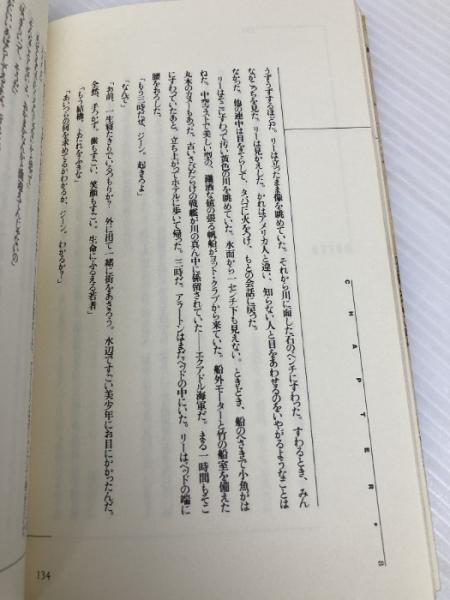 うずうずするほどだ。リーは立ったまま像を眺めていた。それから川に面した石のベンチにすわった。すわるとき、みん
ながこっちを見た。リーは見かえした。かれはアメリカ人と違い、知らない人と目をあわせるのをいやがるようなことは
なかった。他の連中は目をそらして、タバコに火をつけ、もとの会話に戻った。
リーはそこにすわって汚い黄色の川を眺めていた。水面から一センチ下も見えない。ときどき、船のへさきで小魚がは
ねた。中空マストで美しい型の、瀟洒な帆の張る帆船がヨット・クラブから来ていた。船外モーターと竹の船室を備えた
丸木のカヌーもあった。古いさびだらけの戦艦が川の真ん中に係留されていた――エクアドル海軍だ。まる一時間もそこ
にすわっていたあと、立ち上がってホテルに歩いて帰った。三時だ。アラートンはまだベッドの中にいた。リーはベッドの端に
腰をおろした。
「もう三時だぜ、ジーン。起きろよ」
「なんで」
「お前、一生寝たきりでいるつもりか? 外に出て一緒に街をあさろう。水辺ですごい美少年にお目にかかったんだ。
全然、手つかず。歯もすごい、笑顔もすごい。生命にふるえる若者」
「もう結構。よだれをふきな」
「あいつらの何を求めてるかわかるか、ジーン。わかるか?」
CHAPTER・8
134